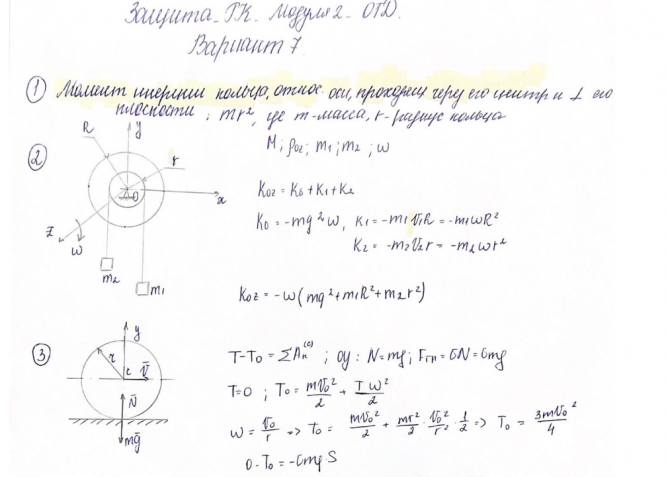 Защита РК. Модуля 2 - ОТД.
Вариант 7
① Момент инерции кольца, относ. оси, проходящ через его центр и ⊥ его
плоскости: mr², где m-масса, r-радиус кольца
②
R
y
r
O
x
z
ω
m₂
m₁
M; ρ₀z; m₁; m₂; ω
K₀z = K₀ + K₁ + K₂
K₀ = -mρ²ω, K₁ = -m₁V₁R = -m₁ωR²
K₂ = -m₂V₂r = -m₂ωr²
K₀z = -ω(mρ² + m₁R² + m₂r²)
③
y
r
c
V̄
N̄
mḡ
T-T₀ = ΣAₖ⁽ᵉ⁾; oy: N = mg; Fтр = δN = δmg
T=0; T₀ = mV₀²/2 + Iω²/2
ω = V₀/r => T₀ = mV₀²/2 + mr²/2 · V₀²/r² · 1/2 => T₀ = 3mV₀²/4
0 - T₀ = -δmg·S